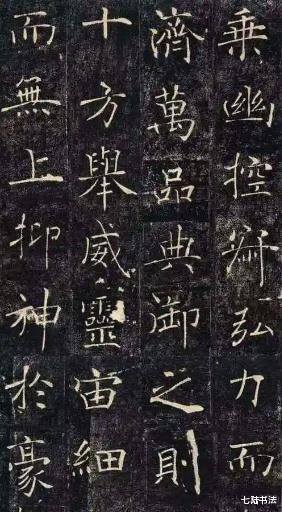 乘幽控寂弘力而
濟萬品典御之則
十方舉威靈宙細
而無上抑神於豪
七陆书法